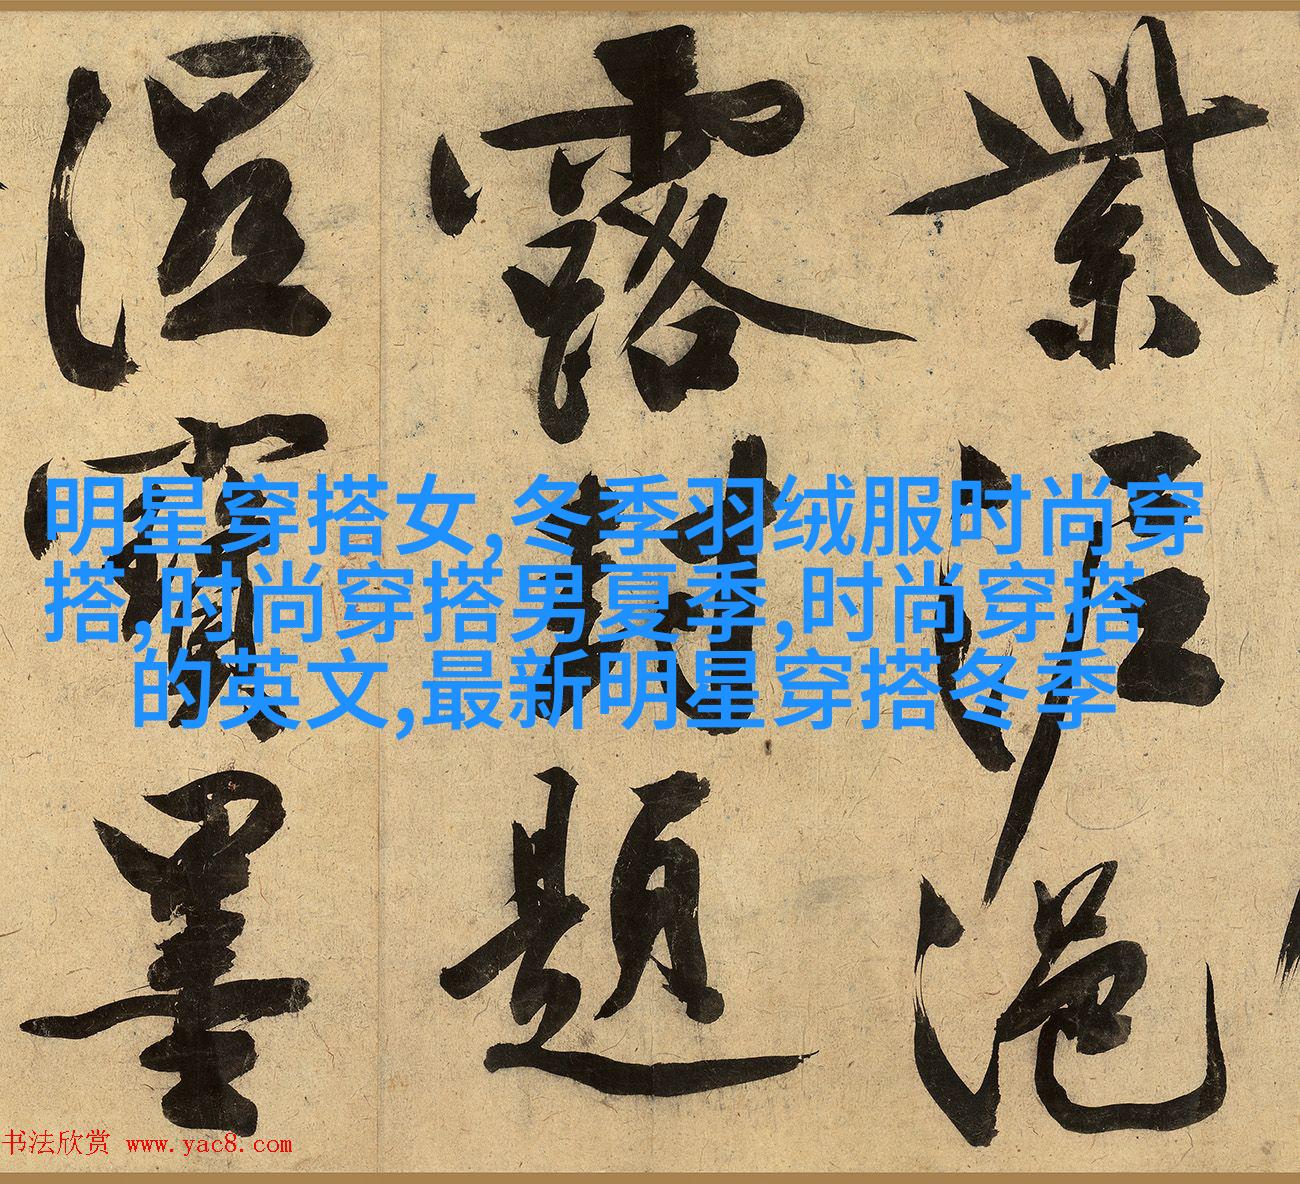 紫泥浥
露封題
湿寶墨
明星穿搭女,冬季羽绒服时尚穿
搭,时尚穿搭男夏季,时尚穿搭
的英文,最新明星穿搭冬季
书法欣赏 www.yac8.com